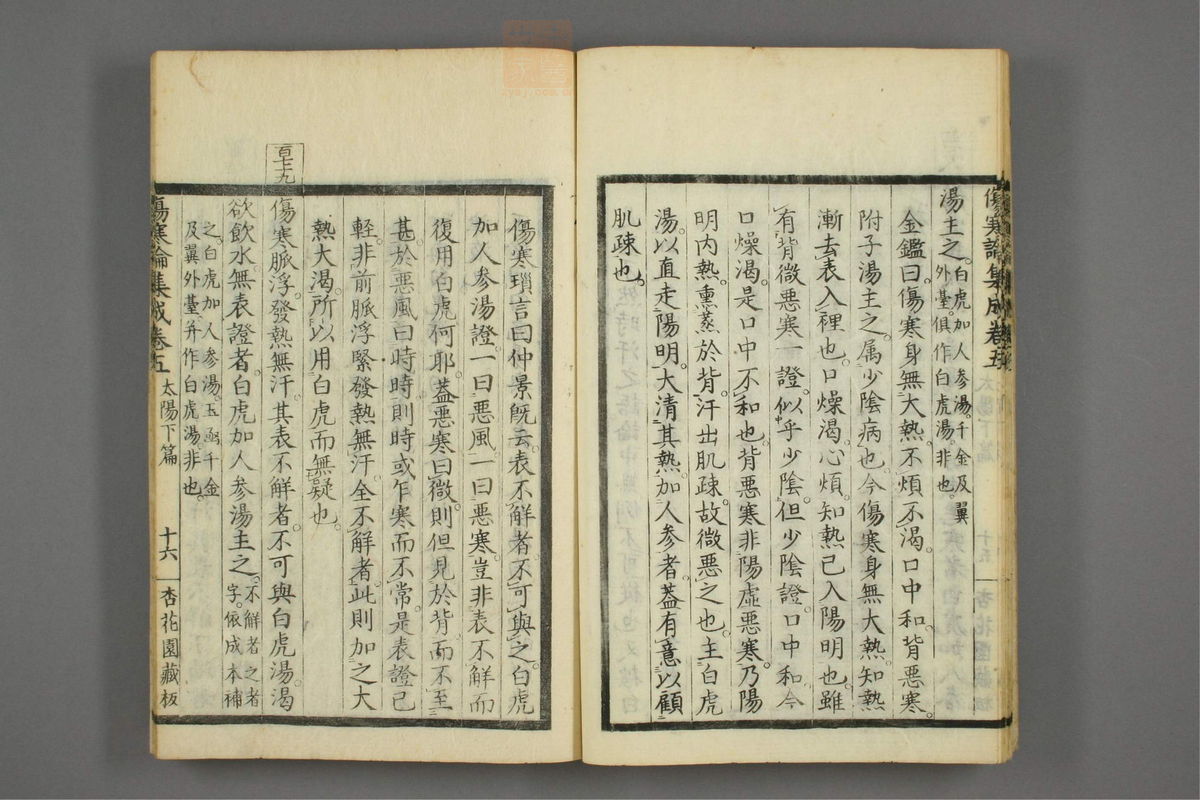 傷寒論集成卷五
湯主之。白虎加人參湯。千金及翼
外臺。俱作白虎湯。非也。
金鑑曰。傷寒身無大熱。不煩不渴。口中和。背惡寒。
附子湯主之。属少陰病也。今傷寒身無大熱。知熱
漸去表入裡也。口燥渴。心煩。知熱已入陽明也。雖
有背微惡寒一證。似乎少陰。但少陰證。口中和。今
口燥渴。是口中不和也。背惡寒。非陽虛惡寒。乃陽
明内熱。熏蒸於背。汗出肌疎。故微惡之也。主白虎
湯。以直走陽明。大清其熱。加人參者。蓋有意以顧
肌疎也。
傷寒瑣言曰。仲景既云。表不解者。不可與之。白虎
加人參湯證。一曰惡風。一曰惡寒。豈非表不解而
復用白虎何耶。蓋惡寒曰微。則但見於背。而不至
甚於惡風曰時時。則時或乍寒而不常。是表證已
輕。非前脈浮緊發熱無汗。全不解者。此則加之大
熱大渴。所以用白虎而無疑也。
百七九
傷寒脈浮。發熱無汗。其表不解者。不可與白虎湯。渴
欲飲水。無表證者。白虎加人參湯主之。不解者之者
字。依成本補
之。白虎加人參湯。玉函千金
及翼外臺。并作白虎湯非也。
傷寒論集成卷五 太陽下篇 十六 杏花園藏板